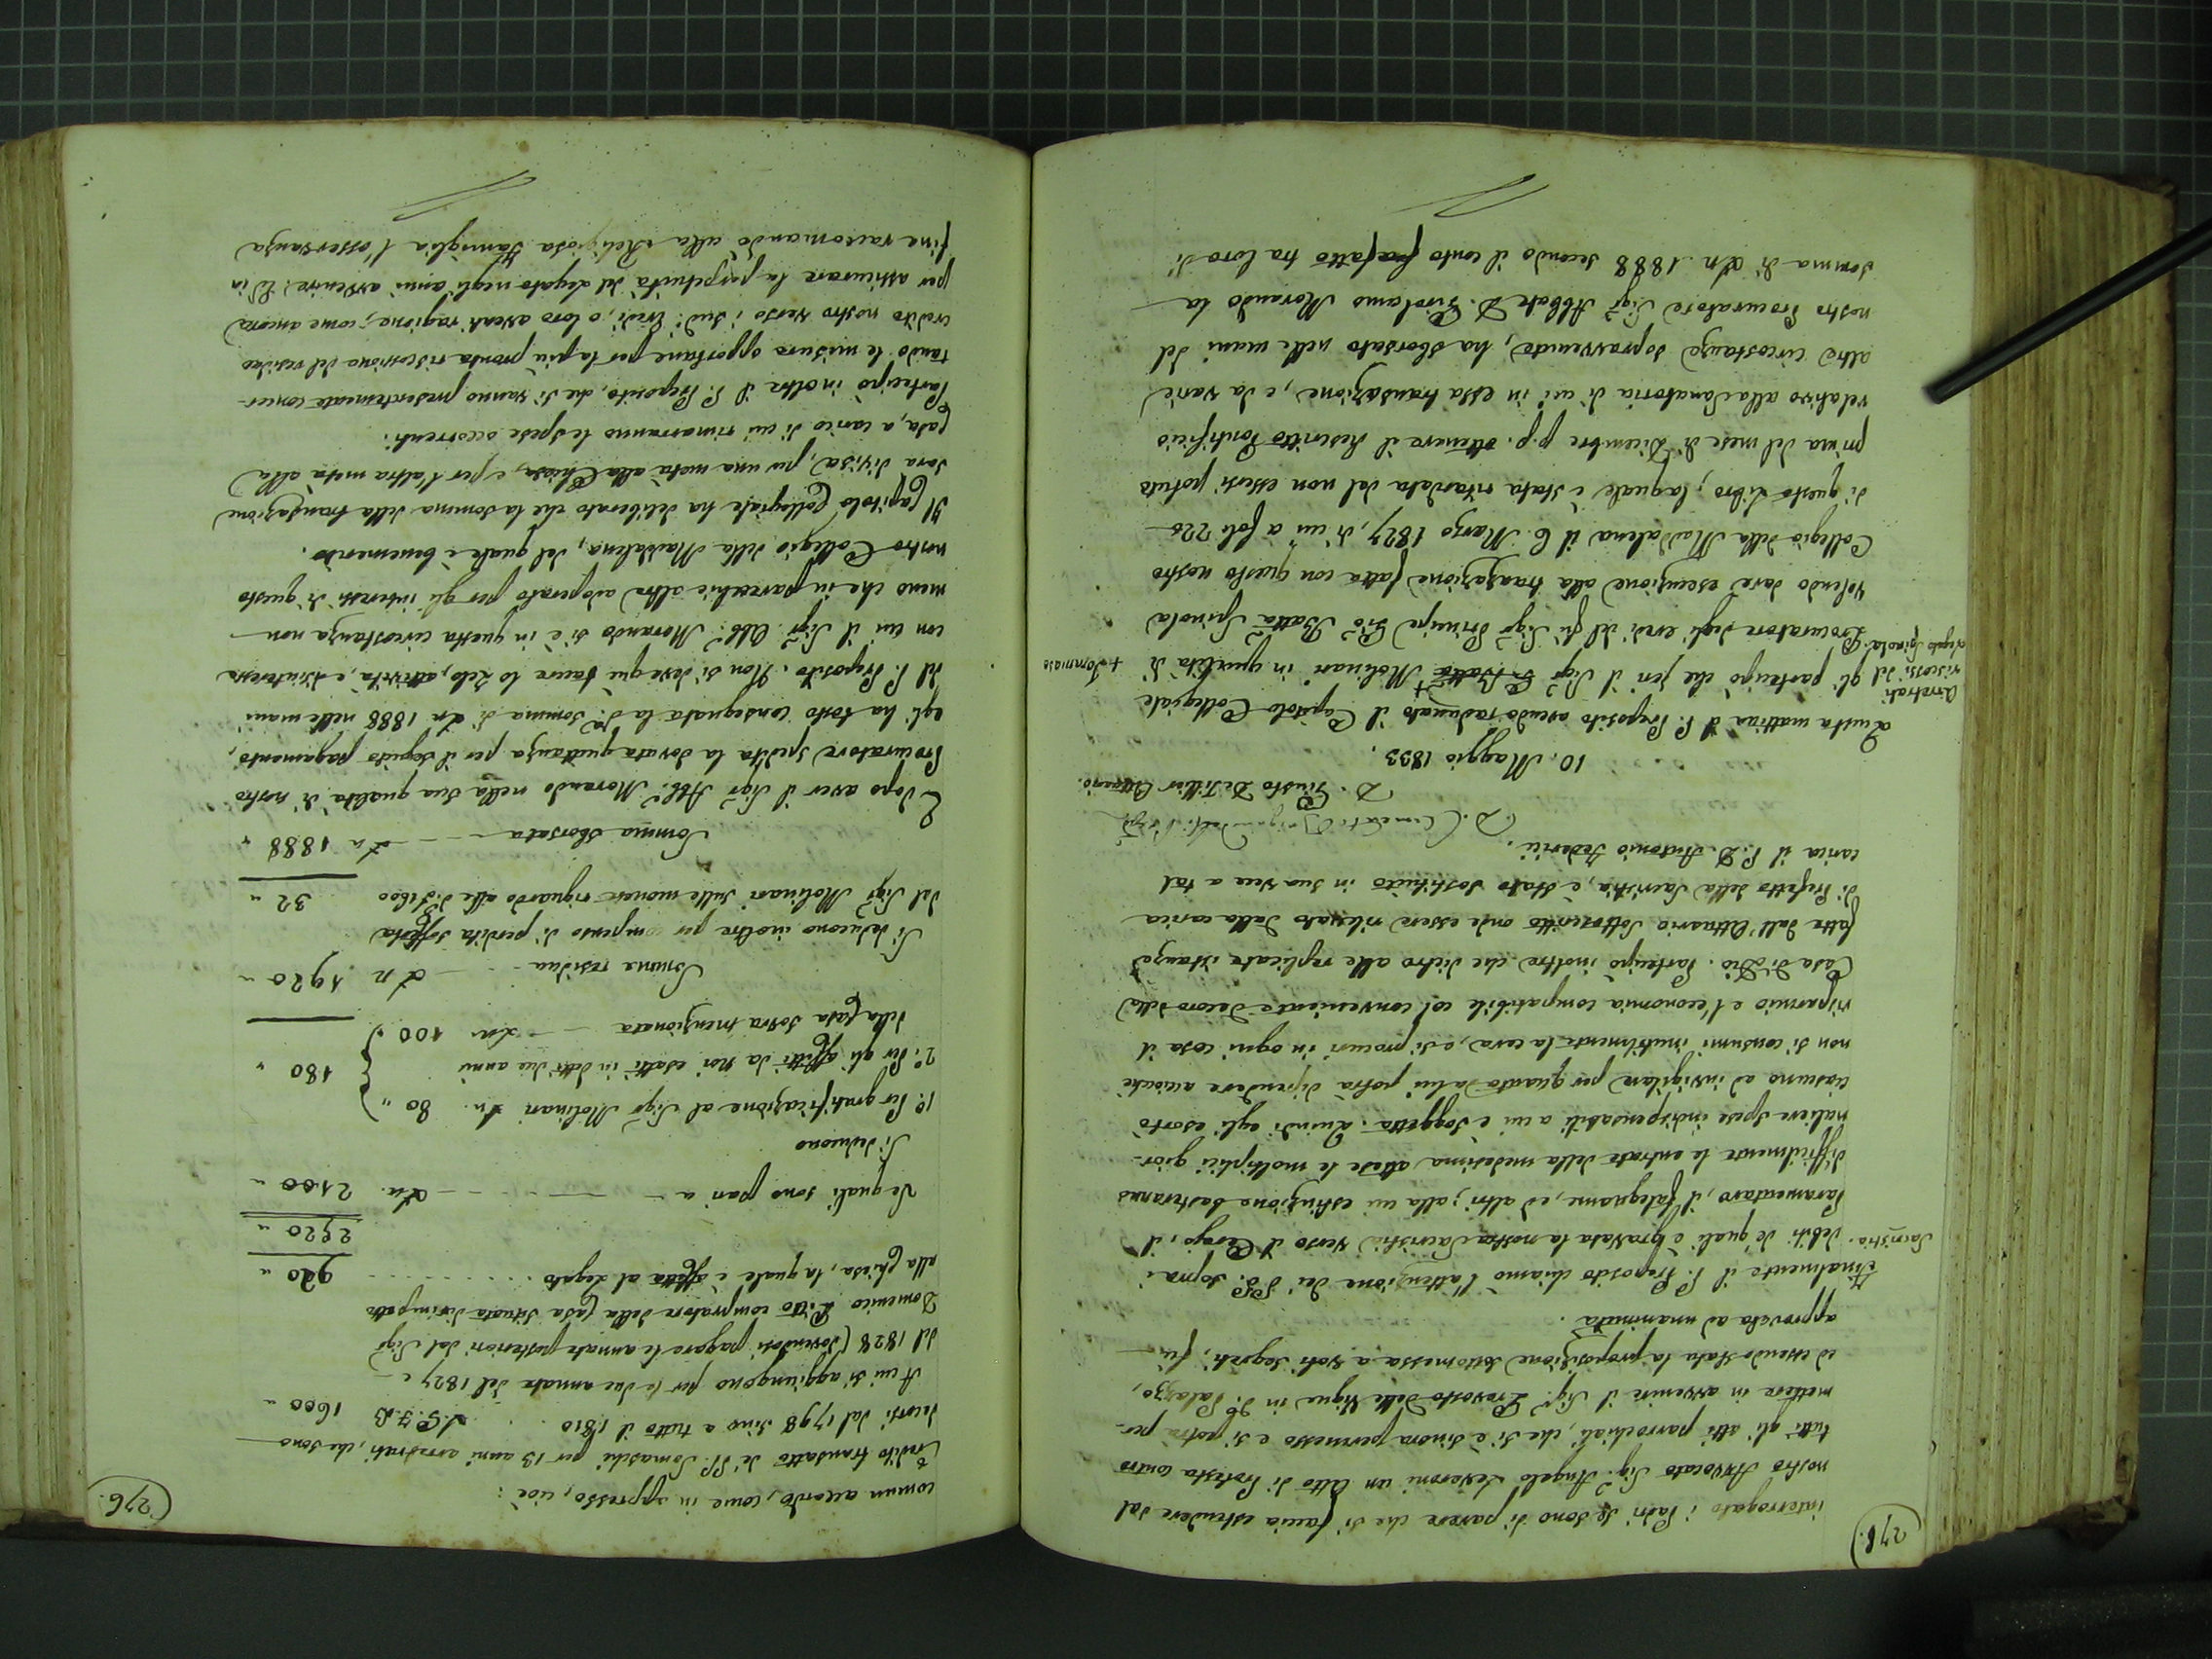 276.
interrogato i Padri se sono di parere che si faccia estendere dal
nostro Avvocato Sig.r Angelo Leveroni un Atto di Protesta contro
tutti gli atti parrochiali, che si è sinora permesso e si potrà per-
mettere in avvenire il Sig.r Prevosto delle Vigne in d.o Palazzo,
ed essendo stata la proposizione sottomessa a voti segreti, fù
approvata ad unanimità.
Sacristia.
Finalmente il P. Preposito chiamò l'attenzione dei PP. sopra i
debiti de' quali è gravata la nostra Sacristia verso il Cerajo, il
Paramentaro, il falegname, ed altri; alla cui estinzione bastevano
difficilmente le entrate della medesima attese le moltiplici gior-
naliere spese indispensabili a cui è soggetta. Quindi egli esortò
ciascuno ad invigilare per quanto da lui potrà dipendere acciochè
non si consumi inutilmente la cera, e si procuri in ogni cosa il
risparmio e l'economia compatibile col conveniente decoro della
Casa di Dio. Partecipò inoltre che dietro alle replicate istanze
fatte dall'Attuario sottoscritto onde essere rilevato dalla carica
di Prefetto della Sacristia, è stato sostituito in sua vece a tal
carica il P. D. Antonio Federici.
D. Clemente
D. Giusto De Filippi Attuario
10. Maggio 1833.
Arretrati
riscossi del
Legato Spinola.
Questa mattina il P. Preposito avendo radunato il Capitolo Collegiale
gli partecipò che jeri il Sig.r G. Batta + Molinari in qualità di
+ Tommaso
Procuratore degli eredi del fù Sig.r Principe Gio. Batta Spinola
volendo dare esecuzione alla transazione fatta con questo nostro
Collegio della Maddalena il 6. Marzo 1827, di cui a fol: 220
di questo Libro; la quale è stata ritardata dal non essersi potuto
prima del mese di Dicembre p.p. ottenere il Rescritto Pontificio
relativo alla Sanatoria di cui in essa transazione, e da varie
altre circostanze sopravvenute, ha sborsato nelle mani del
nostro Procuratore Sig.r Abbate D. Girolamo Morando la
somma di Ln. 1888 secondo il conto fatto tra loro di
276.
comun accordo, come in appresso, cioè:
Credito transatto de' PP. Somaschi per 13 anni arretrati, che sono
decorsi dal 1798 sino a tutto il 1810 . . . L. F. B. 1600 "
A cui si aggiungono per le due annate del 1827 e
del 1828 (dovendosi pagare le annate posteriori dal Sig.r
Domenico compratore della Casa situata dirimpetto
alla Chiesa, la quale è affetta al Legato . . . . . 920 "
2520 "
Le quali sono pari a — Ln. 2100 "
Si deducono
1.o Per gratificazione al Sig.r Molinari Ln. 80 "
2.o Per gli affitti da Noi esatti in detti due anni
della Casa sovra menzionata — Ln. 100 "
180 "
Somma residua — Ln 1920 "
Si deducono inoltre per compenso di perdita sofferta
dal Sig.r Molinari sulle monete riguardo alle dd. L. 1600
32 "
Somma sborsata — Ln 1888 "
E dopo aver il Sig.r Abb.e Morando nella sua qualità di nostro
Procuratore spedita la dovuta quittanza per il seguito pagamento,
egli ha tosto consegnata la d.a somma di Ln 1888 nelle mani
del P. Preposito. Non si deve quì tacere lo zelo, attività, e disinteresse
con cui il Sig.r Abb.e Morando si è in questa circostanza non
meno che in parecchie altre adoperato per gli interessi di questo
nostro Collegio della Maddalena, del quale è benemerito.
Il Capitolo Collegiale ha deliberato che la somma della transazione
sarà divisa, per una metà alla Chiesa, e per l'altra metà alla
Casa, a carico di cui rimarranno le spese occorrenti.
Partecipò inoltre il P. Preposito, che si vanno presentemente concer-
tando le misure opportune per la più pronta riscossione del residuo
credito nostro verso i sud.i Eredi, o loro aventi ragione; come ancora
per assicurare la perpetuità del Legato negli anni avvenire. Ed in
fine raccomandò alla Religiosa Famiglia l'osservanza